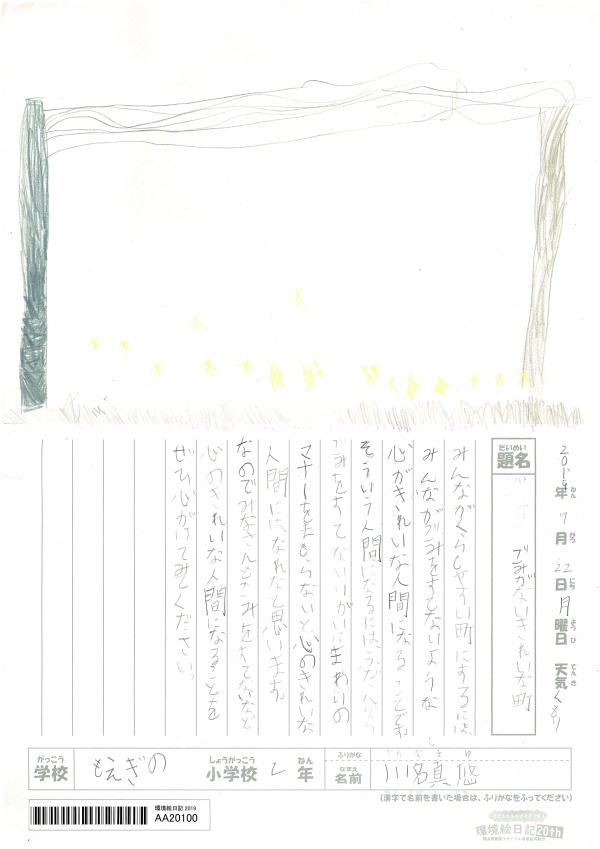 2019年7月22日月曜日 天気くもり
ねん がつ にち ようび てんき
だいめい
題名 ごみがないきれいな町
みんながくらしやすい町にするには、
みんながごみをすてないような
心がきれいな人間になることです。
そういう人間になるには、ふだんから
ごみをすてないいがいにまわりの
マナーをまもらないと心のきれいな
人間にはなれないと思います。
なのでみなさんもごみをすてないなど
心のきれいな人間になることを
ぜひ心がけてみてください。
がっこう しょうがっこう ねん ふりがな
学校 もえぎの 小学校 年
なまえ
名前 川名真悠
(漢字で名前を書いた場合は、ふりがなをふってください)
環境絵日記 2019
AA20100
環境絵日記20th